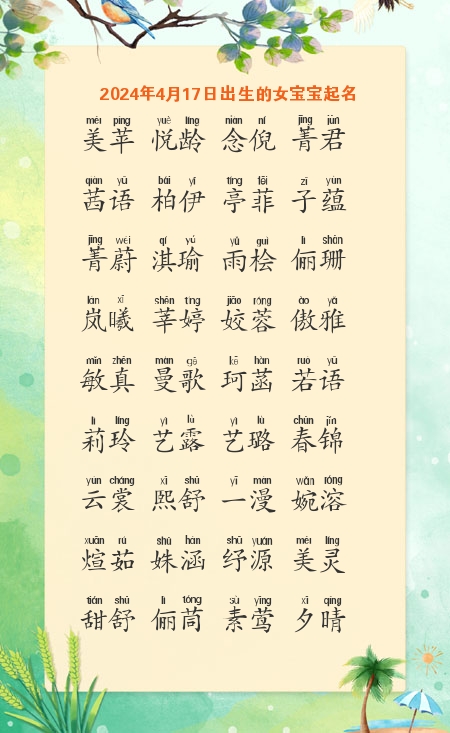 2024年4月17日出生的女宝宝起名
měi píng yuè líng niàn ní jīng jūn
美苹 悦龄 念倪 菁君
qiàn yǔ bǎi yī tíng fēi zǐ yùn
茜语 柏伊 亭菲 子蕴
jīng wèi qí yú yǔ guì lì shān
菁蔚 淇瑜 雨桧 俪珊
lán xī shēn tíng jiāo róng ào yǎ
岚曦 莘婷 姣蓉 傲雅
mǐn zhēn màn gē kē hàn ruò yǔ
敏真 曼歌 珂菡 若语
lì líng yì lù yì lù chūn jǐn
莉玲 艺露 艺璐 春锦
yún cháng xī shū yī màn wǎn róng
云裳 熙舒 一漫 婉溶
xuān rú shū hán shū yuán měi líng
煊茹 姝涵 纾源 美灵
tián shū lì tóng sù yīng xī qíng
甜舒 俪茼 素莺 夕晴